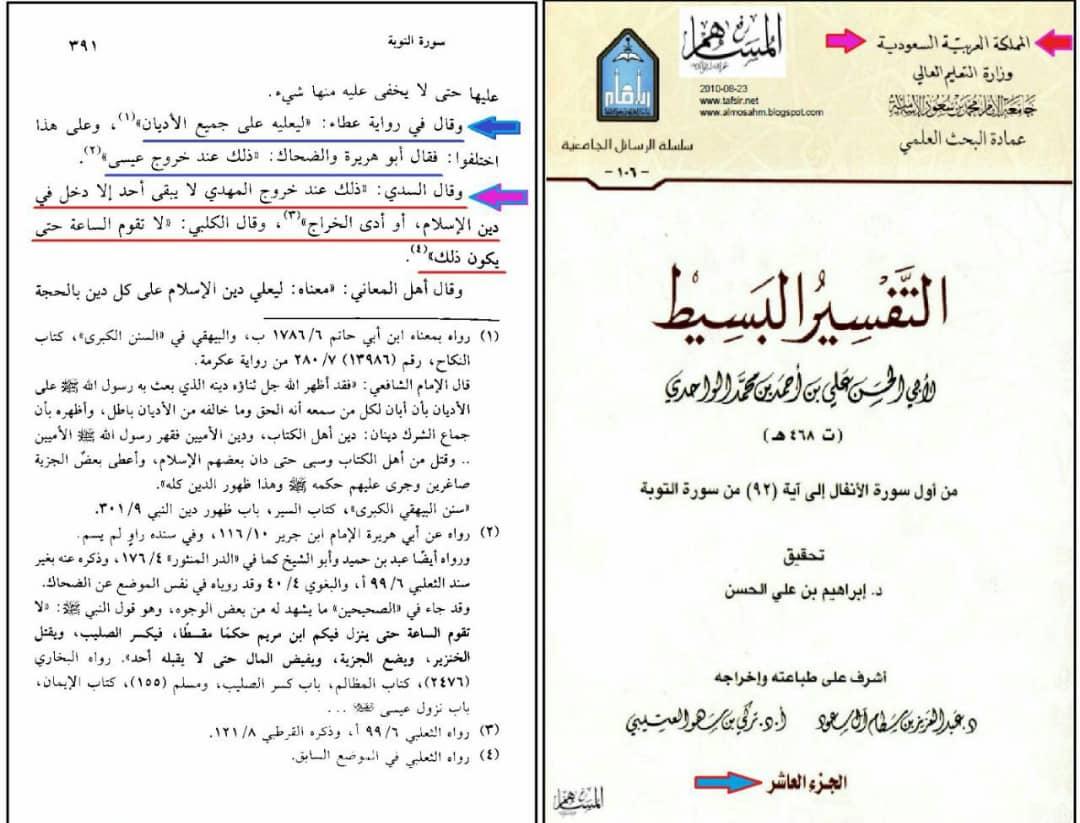 سورة التوبة
٣٩١
عليها حتى لا يخفى عليه منها شيء.
وقال في رواية عطاء: «ليعليه على جميع الأديان»(١)، وعلى هذا
اختلفوا: فقال أبو هريرة والضحاك: «ذلك عند خروج عيسى»(٢).
وقال السدي: «ذلك عند خروج المهدي لا يبقى أحد إلا دخل في
دين الإسلام، أو أدى الخراج»(٣)، وقال الكلبي: «لا تقوم الساعة حتى
يكون ذلك»(٤).
وقال أهل المعاني: «معناه: ليعلي دين الإسلام على كل دين بالحجة
(١) رواه بمعناه ابن أبي حاتم ٦/ ١٧٨٦ ب، والبيهقي في «السنن الكبرى»، كتاب
النكاح، رقم (١٣٩٨٦) ٧/ ٢٨٠ من رواية عكرمة.
قال الإمام الشافعي: «فقد أظهر الله جل ثناؤه دينه الذي بعث به رسول الله ﷺ على
الأديان بأن أبان لكل من سمعه أنه الحق وما خالفه من الأديان باطل، وأظهره بأن
جماع الشرك دينان: دين أهل الكتاب، ودين الأميين فقهر رسول الله ﷺ الأميين
.. وقتل من أهل الكتاب وسبى حتى دان بعضهم الإسلام، وأعطى بعضٌ الجزية
صاغرين وجرى عليهم حكمه ﷺ وهذا ظهور الدين كله».
«سنن البيهقي الكبرى»، كتاب السير، باب ظهور دين النبي ٩/ ٣٠١.
(٢) رواه عن أبي هريرة الإمام ابن جرير ١٠/ ١١٦، وفي سنده راوٍ لم يسم.
ورواه أيضًا عبد بن حميد وأبو الشيخ كما في «الدر المنثور» ٤/ ١٧٦، وذكره عنه بغير
سند الثعلبي ٦/ ٩٩ أ، والبغوي ٤/ ٤٠ وقد روياه في نفس الموضع عن الضحاك.
وقد جاء في «الصحيحين» ما يشهد له من بعض الوجوه، وهو قول النبي ﷺ: «لا
تقوم الساعة حتى ينزل فيكم ابن مريم حكمًا مقسطًا، فيكسر الصليب، ويقتل
الخنزير، ويضع الجزية، ويفيض المال حتى لا يقبله أحد». رواه البخاري
(٢٤٧٦)، كتاب المظالم، باب كسر الصليب، ومسلم (١٥٥)، كتاب الإيمان،
باب نزول عيسى ...
(٣) رواه الثعلبي ٦/ ٩٩ أ، وذكره القرطبي ٨/ ١٢١.
(٤) رواه الثعلبي في الموضع السابق.
المملكة العربية السعودية
وزارة التعليم العالي
جامعة الإمام محمد بن سعود الإسلامية
عمادة البحث العلمي
المساهم
2010-08-23
www.tafsir.net
www.almosahm.blogspot.com
سلسلة الرسائل الجامعية
- ١٠٦ -
التَّفْسِيرُ البَسِيْط
لأبي الحسن علي بن أحمد بن محمد الواحدي
(ت ٤٦٨ هـ)
من أول سورة الأنفال إلى آية (٩٢) من سورة التوبة
تحقيق
د. إبراهيم بن علي الحسن
أشرف على طباعته وإخراجه
د. عبد العزيز بن سطام آل سعود أ. د. تركي بن سهو العتيبي
الجزء العاشر
المساهم